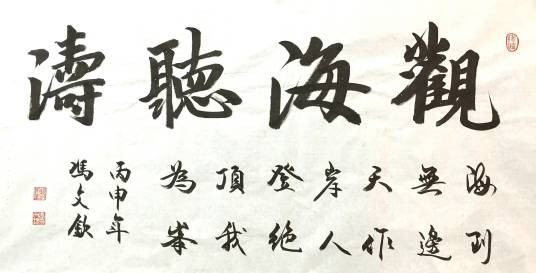 觀海聽濤
海到
無邊
天作
岸人
登絕
頂我
為峯
丙申年
馮文欽